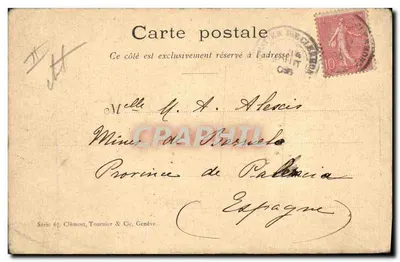 Carte postale
Ce côté est exclusivement réservé à l'adresse
Melle M. A. Alexis
Mines de
Province de Palencia
(Espagne)
Série 65 Clément, Tournier & Cie, Genève.
10
CRAPHTI